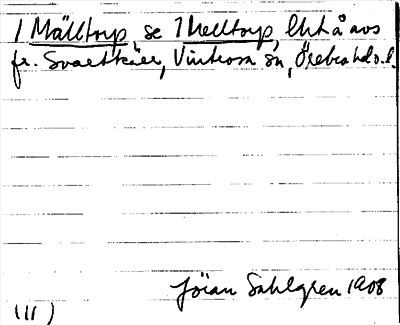 1 Mälltorp, se 1 Melltorp, lht å avs
fr. Svartkärr, Vintrosa sn, Örebro hd ö. l.
Jöran Sahlgren 1908
(11)